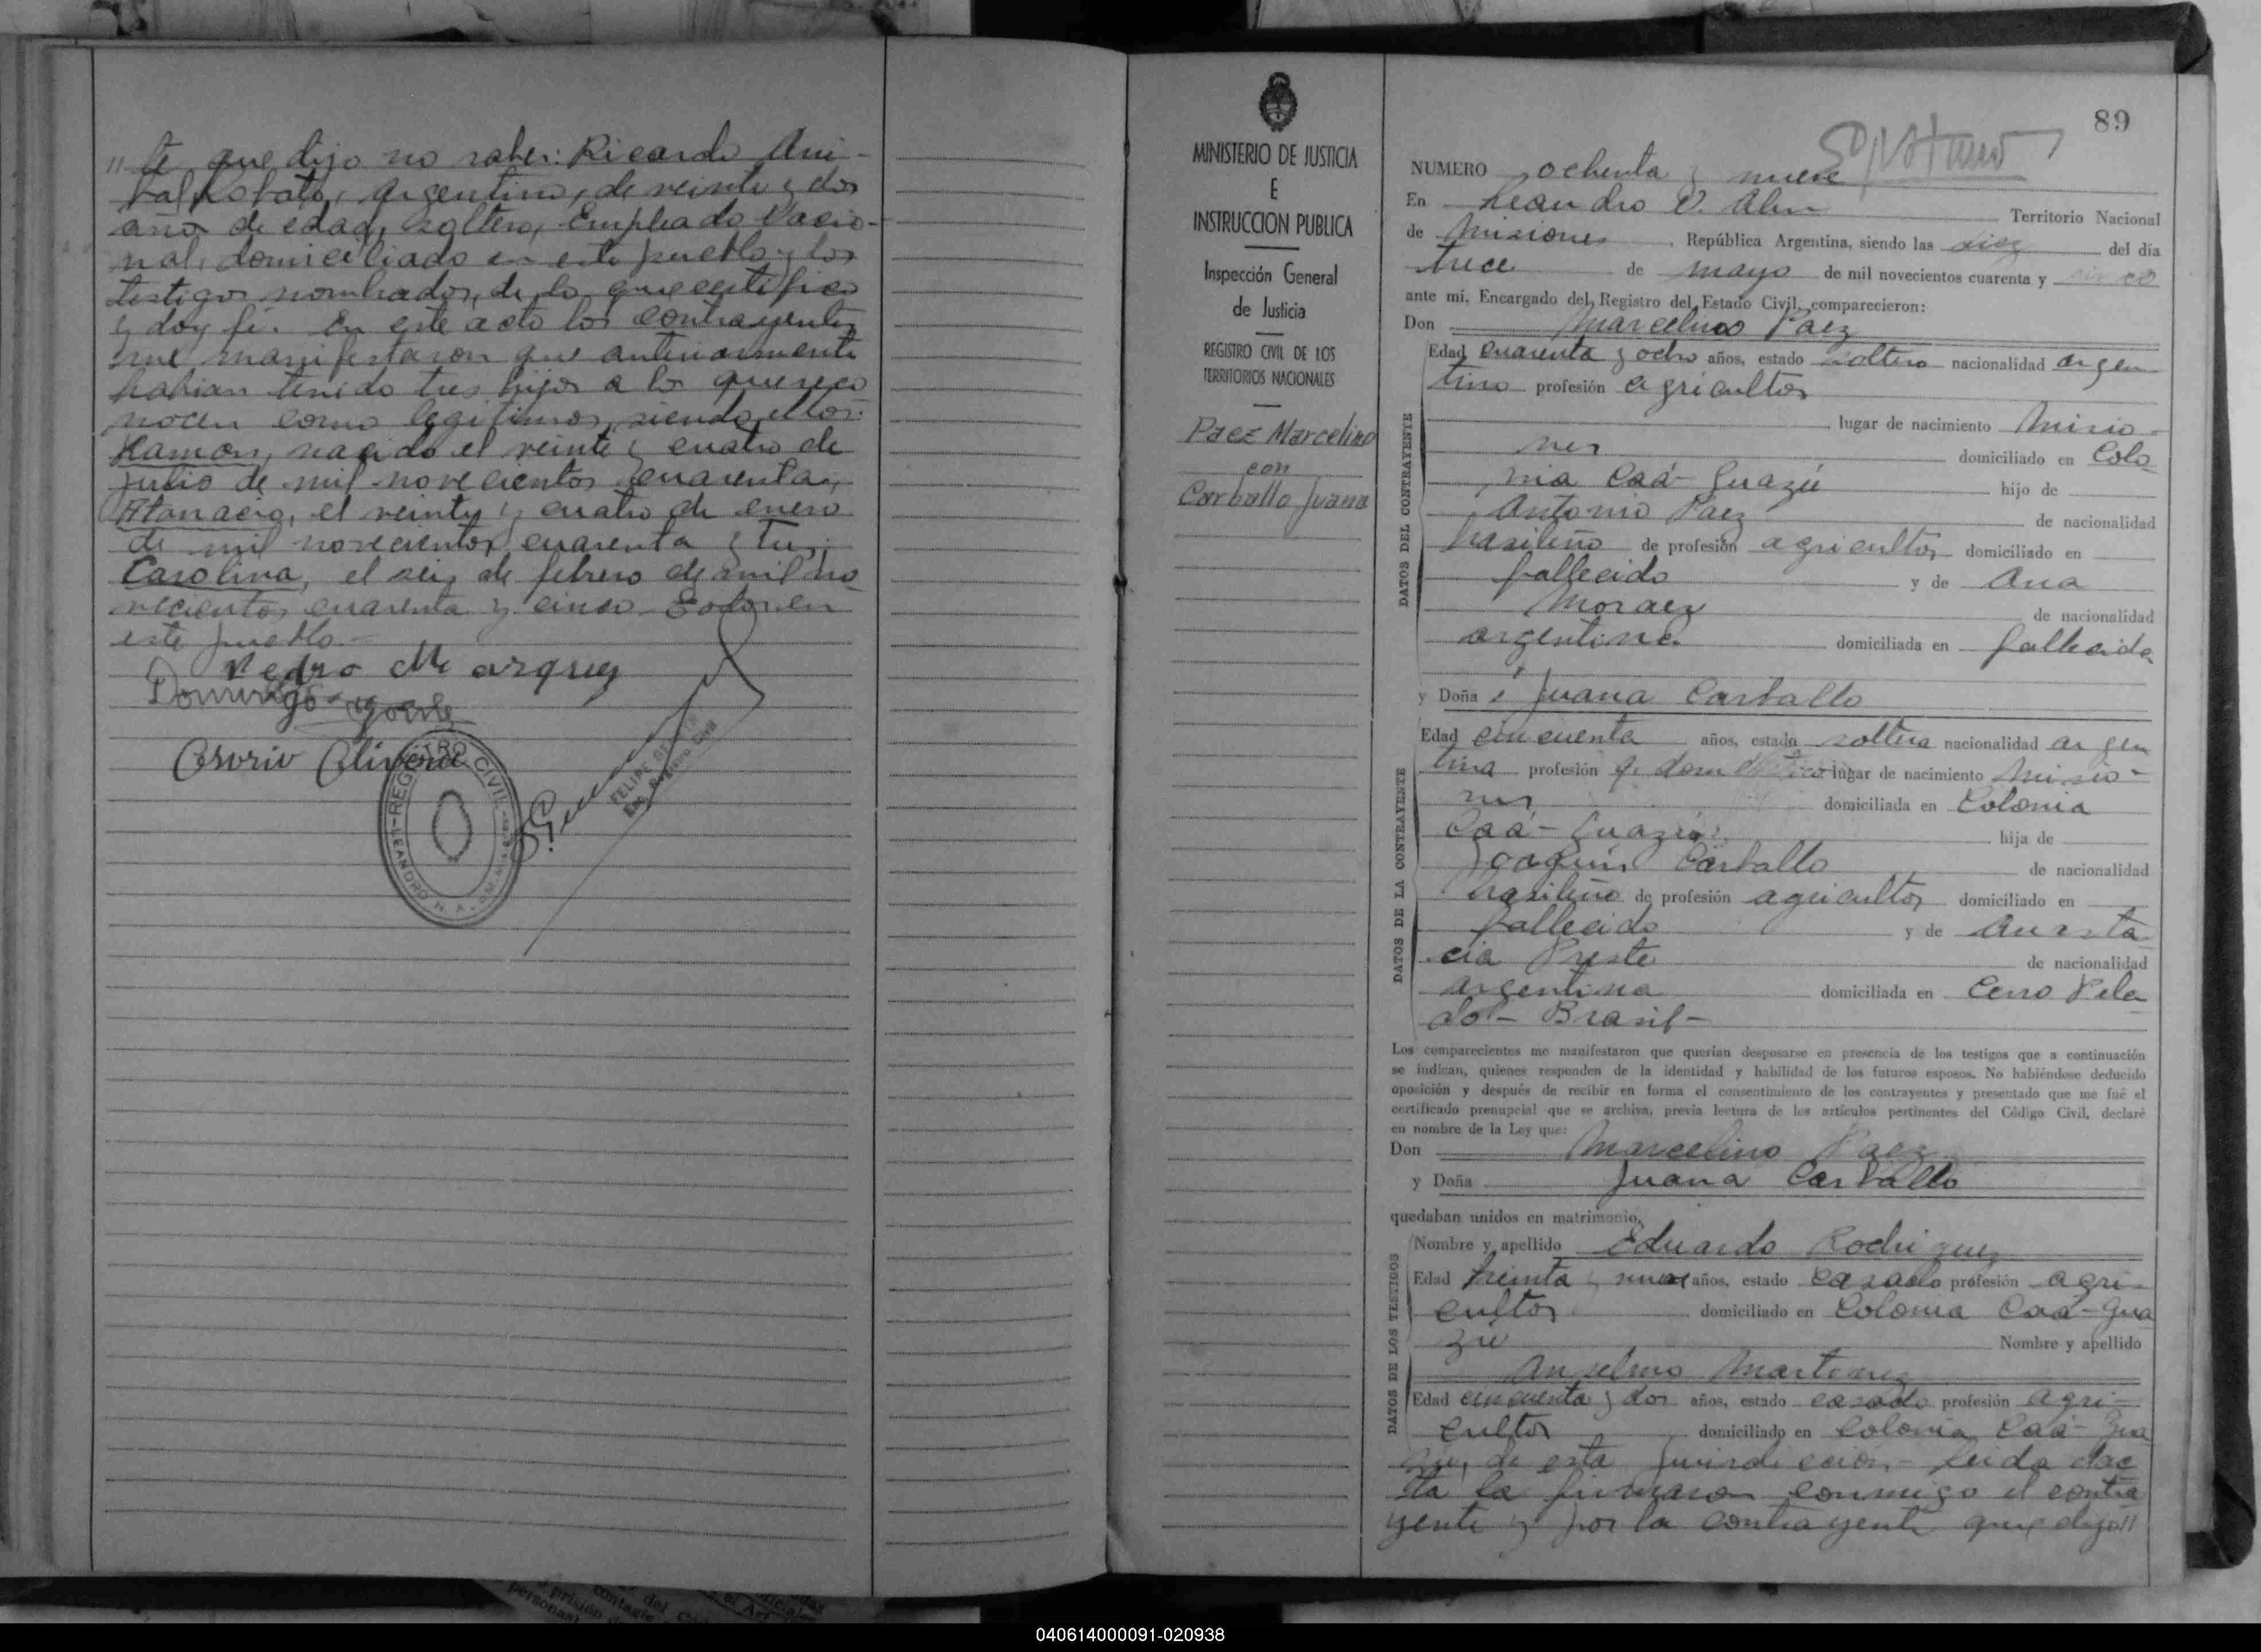 " te que dijo no saber: Ricardo Ani-
bal Lobato, argentino, de veinte y dos
años de edad, soltero, Empleado Nacio-
nal, domiciliado en este pueblo y los
testigos nombrados, de lo que certifico
y doy fé. En este acto los contrayentes
me manifestaron que anteriormente
habian tenido tres hijos a los que reco
nocen como legitimos, siendo ellos:
Ramon, nacido el veinte y cuatro de
julio de mil novecientos cuarenta,
Atanacio, el veinte y cuatro de enero
de mil novecientos cuarenta y tres;
Carolina, el seis de febrero de mil no
vecientos cuarenta y cinco. Todos en
este pueblo.-
Pedro Marques
Domingo
Osorio Olivera
REGISTRO CIVIL
LEANDRO N. A.
FELIPE
Enc. Registro Civil
MINISTERIO DE JUSTICIA
E
INSTRUCCION PUBLICA
Inspección General
de Justicia
REGISTRO CIVIL DE LOS
TERRITORIOS NACIONALES
Paez Marcelino
con
Carballo Juana
89
NUMERO ochenta y nueve
En Leandro N. Alem Territorio Nacional
de Misiones, República Argentina, siendo las diez del día
trece de mayo de mil novecientos cuarenta y cinco
ante mí, Encargado del Registro del Estado Civil, comparecieron:
Don Marcelino Paez
DATOS DEL CONTRAYENTE
Edad cuarenta y ocho años, estado soltero nacionalidad argen
tino profesión agricultor
lugar de nacimiento Misio-
nes domiciliado en Colo
nia Caá-Guazú hijo de
Antonio Paez de nacionalidad
brasileño de profesión agricultor domiciliado en
fallecido y de Ana
Moraez de nacionalidad
argentina domiciliada en fallecida
y Doña Juana Carballo
DATOS DE LA CONTRAYENTE
Edad cincuenta años, estado soltera nacionalidad argen
tina profesión q. domésticos lugar de nacimiento Misio-
nes domiciliada en Colonia
Caá-Guazú hija de
Joaquín Carballo de nacionalidad
brasileño de profesión agricultor domiciliado en
fallecido y de Anasta
cia Preste de nacionalidad
argentina domiciliada en Cerro Pela
do - Brasil -
Los comparecientes me manifestaron que querían desposarse en presencia de los testigos que a continuación
se indican, quienes responden de la identidad y habilidad de los futuros esposos. No habiéndose deducido
oposición y después de recibir en forma el consentimiento de los contrayentes y presentado que me fué el
certificado prenupcial que se archiva, previa lectura de los artículos pertinentes del Código Civil, declaré
en nombre de la Ley que:
Don Marcelino Paez
y Doña Juana Carballo
quedaban unidos en matrimonio.
DATOS DE LOS TESTIGOS
Nombre y apellido Eduardo Rodriguez
Edad treinta y nueve años, estado casado profesión agri-
cultor domiciliado en Colonia Caá-Gua
zú Nombre y apellido
Anselmo Martinez
Edad cincuenta y dos años, estado casado profesión agri-
cultor domiciliado en Colonia Caá-Gua
zú, de esta jurisdiccion.- Leida el ac
ta la firmaron conmigo el contra
yente y por la contrayente que dijo"
040614000091-020938